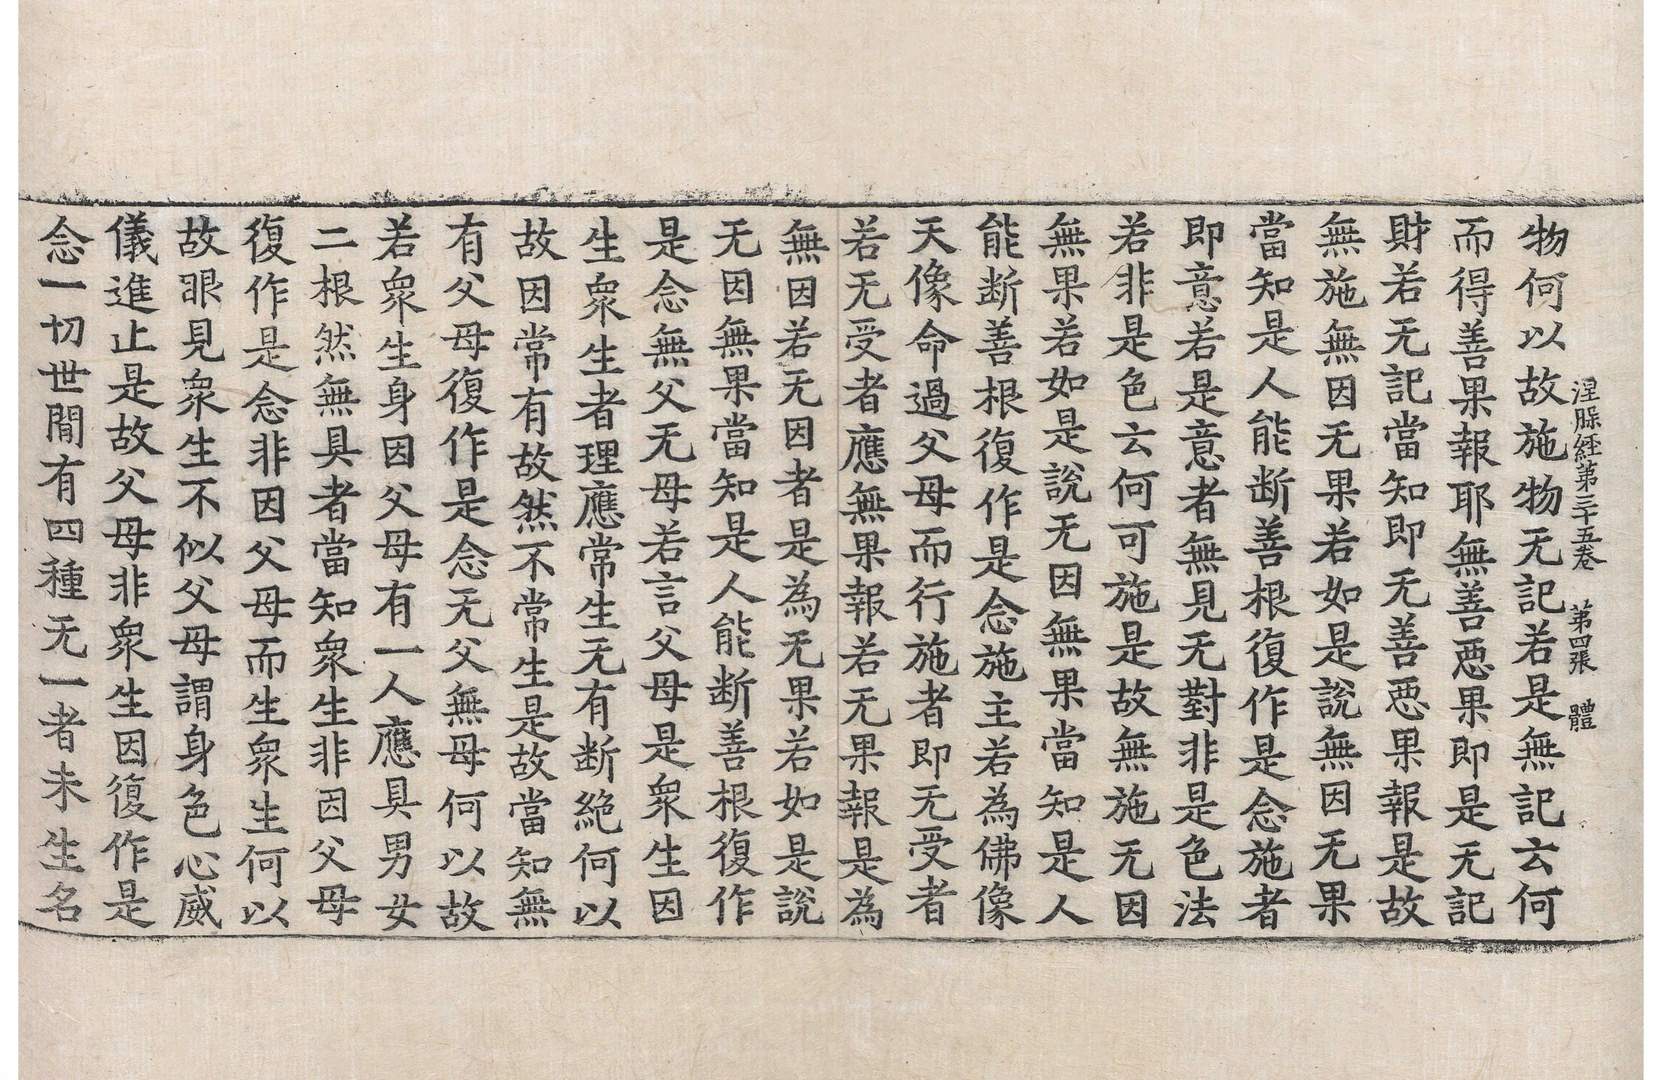 涅槃經第三十五卷 第四張 體
物何以故施物无記若是無記云何
而得善果報耶無善惡果即是无記
財若无記當知即无善惡果報是故
無施無因无果若如是說無因无果
當知是人能断善根復作是念施者
即意若是意者無見无對非是色法
若非是色云何可施是故無施无因
無果若如是說无因無果當知是人
能断善根復作是念施主若為佛像
天像命過父母而行施者即无受者
若无受者應無果報若无果報是為
無因若无因者是為无果若如是說
无因無果當知是人能断善根復作
是念無父无母若言父母是衆生因
生衆生者理應常生无有断絶何以
故因常有故然不常生是故當知無
有父母復作是念无父無母何以故
若衆生身因父母有一人應具男女
二根然無具者當知衆生非因父母
復作是念非因父母而生衆生何以
故眼見衆生不似父母謂身色心威
儀進止是故父母非衆生因復作是
念一切世間有四種无一者未生名